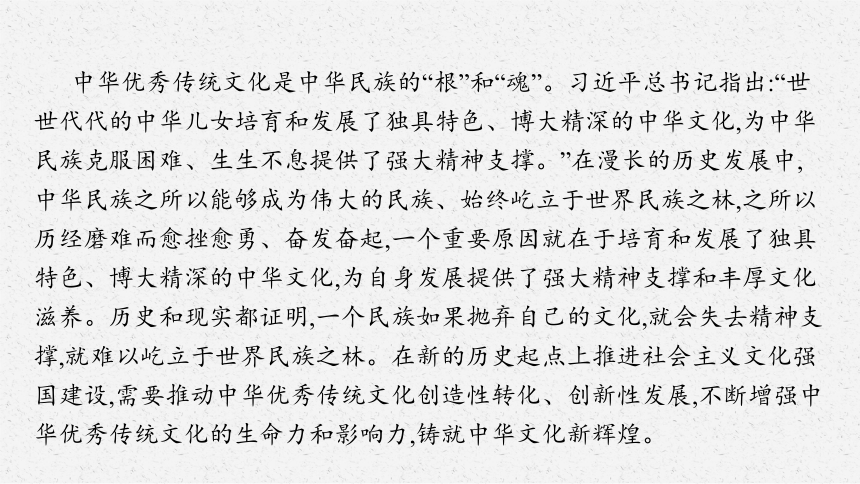 中华优秀传统文化是中华民族的“根”和“魂”。习近平总书记指出:“世
世代代的中华儿女培育和发展了独具特色、博大精深的中华文化,为中华
民族克服困难、生生不息提供了强大精神支撑。”在漫长的历史发展中,
中华民族之所以能够成为伟大的民族、始终屹立于世界民族之林,之所以
历经磨难而愈挫愈勇、奋发奋起,一个重要原因就在于培育和发展了独具
特色、博大精深的中华文化,为自身发展提供了强大精神支撑和丰厚文化
滋养。历史和现实都证明,一个民族如果抛弃自己的文化,就会失去精神支
撑,就难以屹立于世界民族之林。在新的历史起点上推进社会主义文化强
国建设,需要推动中华优秀传统文化创造性转化、创新性发展,不断增强中
华优秀传统文化的生命力和影响力,铸就中华文化新辉煌。